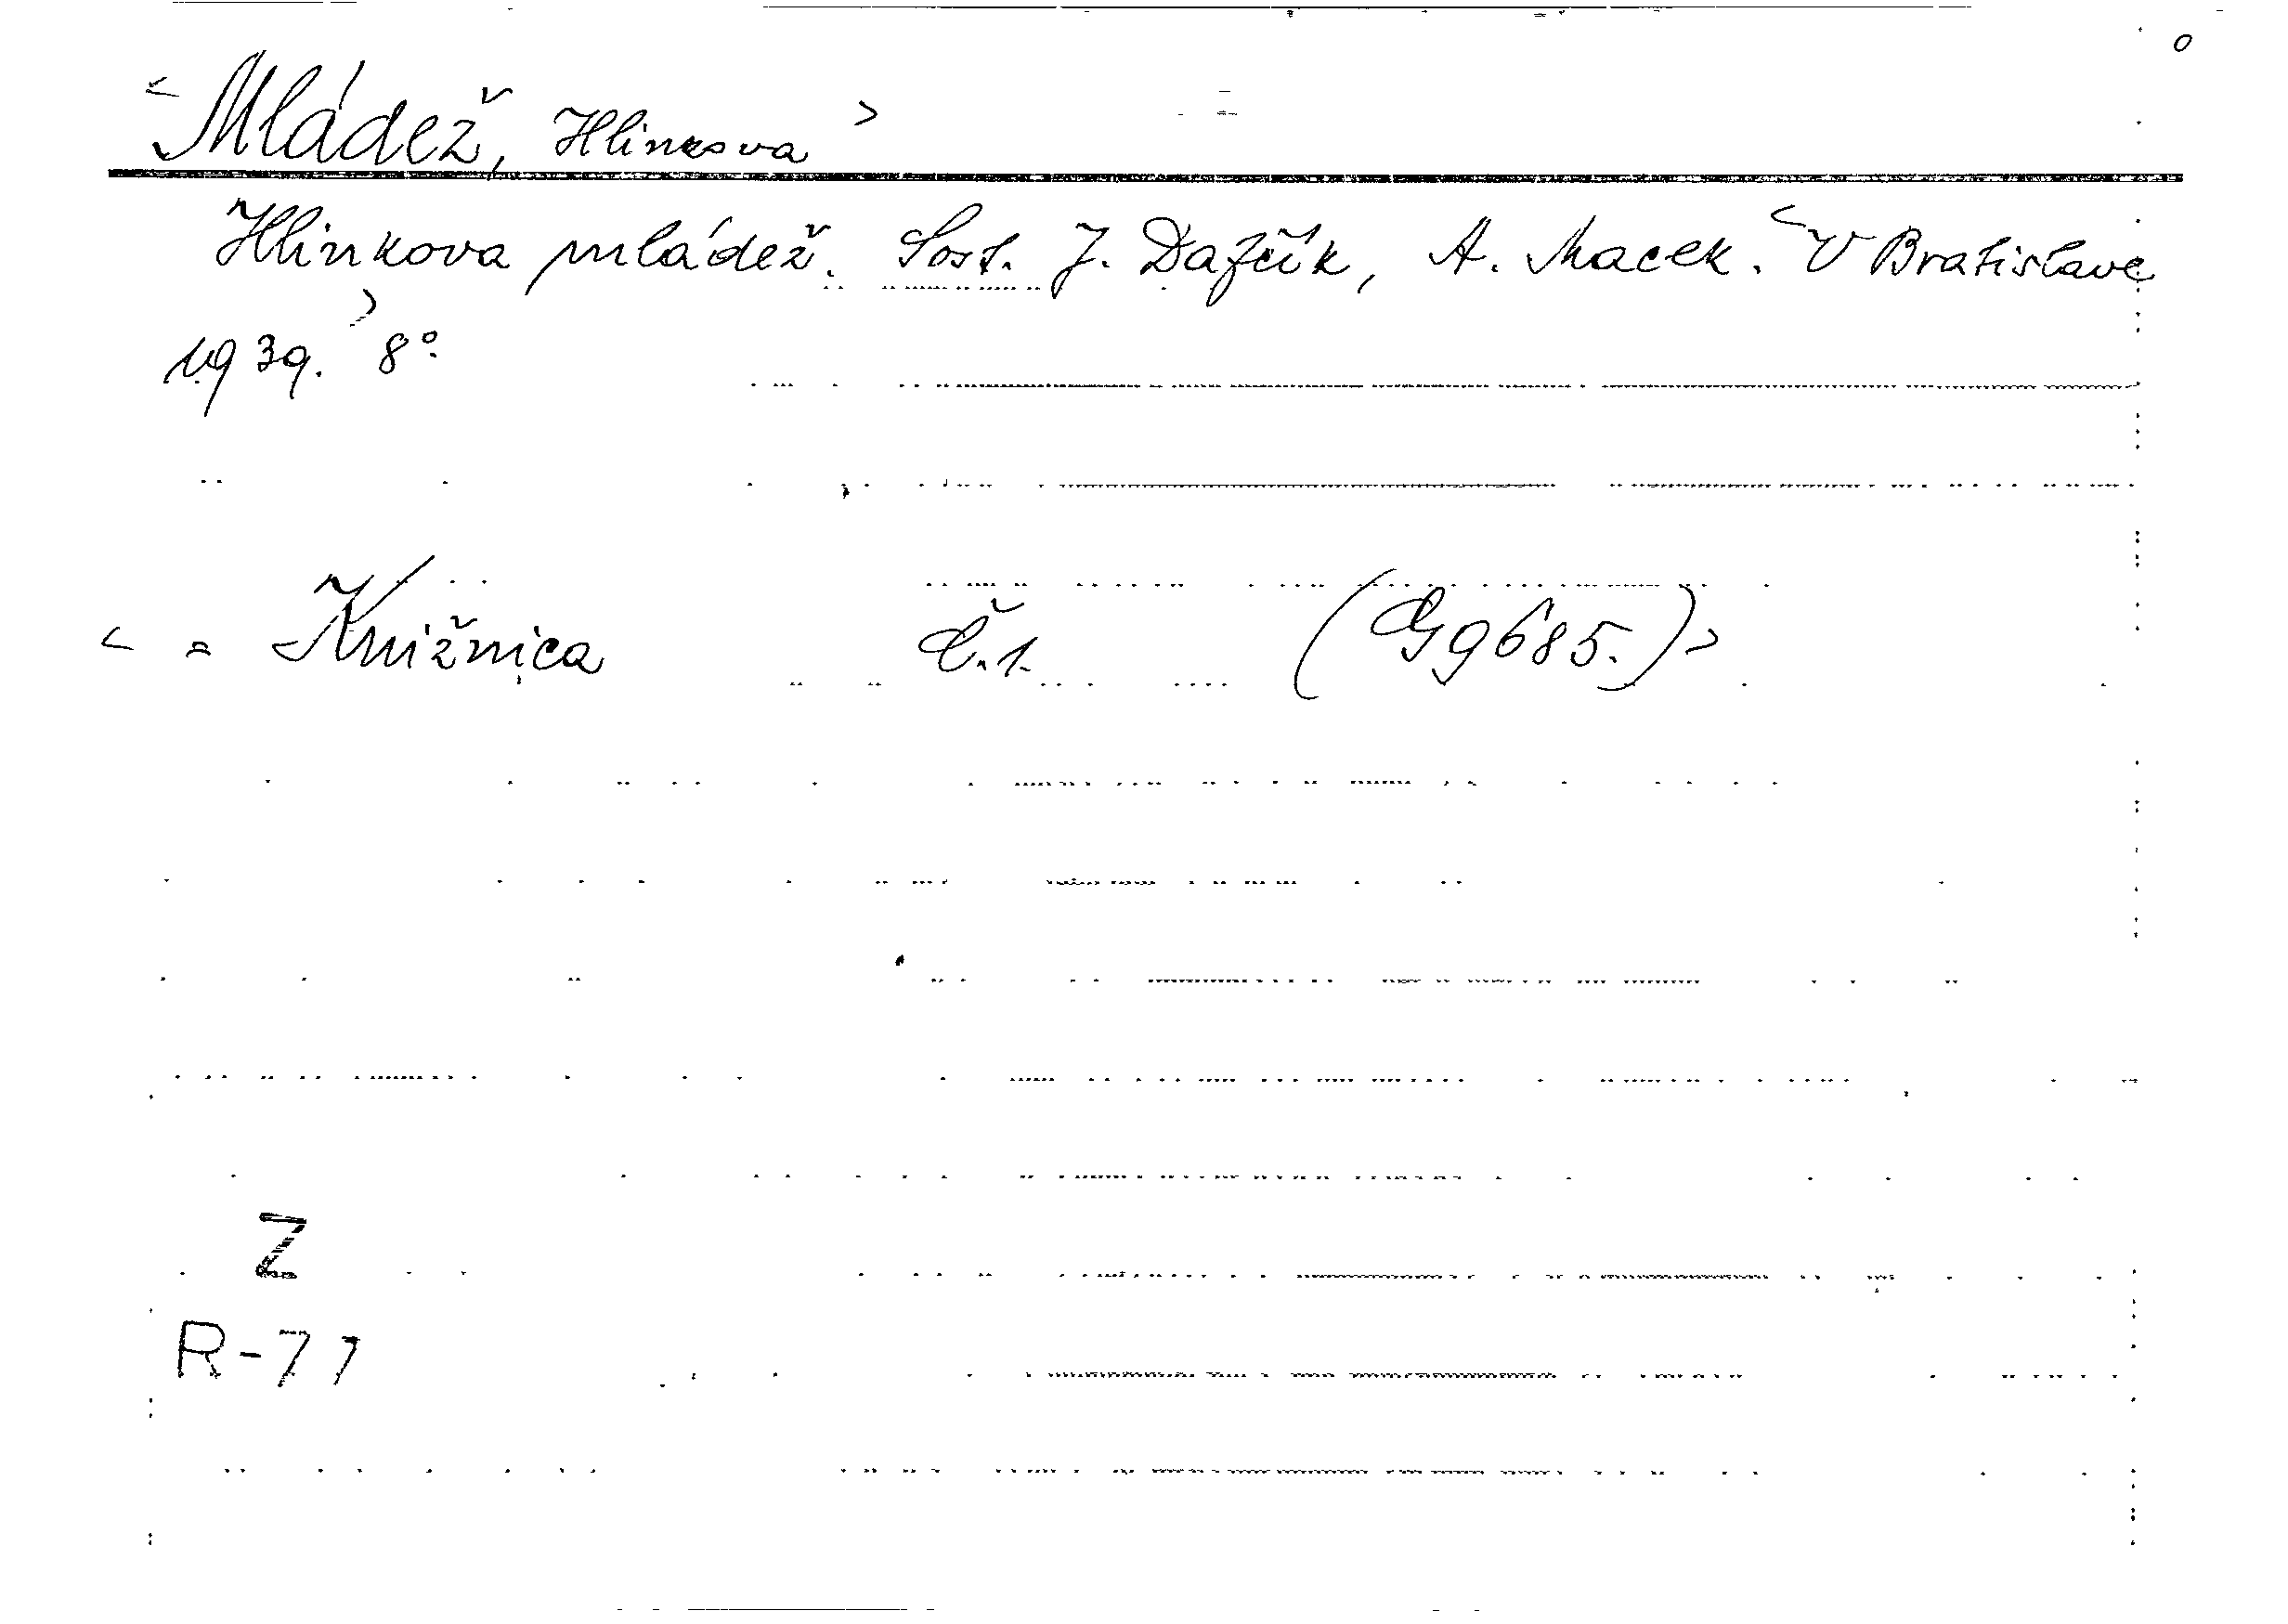 <Mládež, Hlinkova>
Hlinkova mládež. Sost. J. Dafčík, A. Macek. <V Bratislave
1939.> 8°.
< = Knižnica č.1. (Gg685.)>
Z
R-77